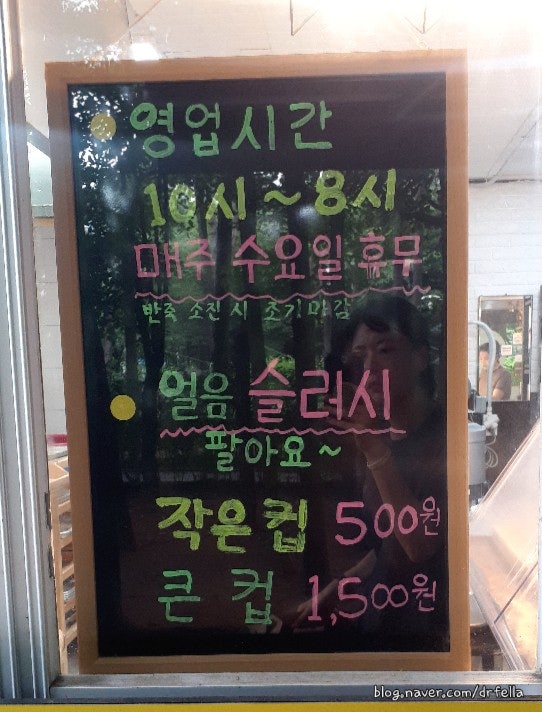 영업시간
10시~8시
매주 수요일 휴무
반죽 소진시 조기마감
얼음 슬러시
팔아요~
작은컵 500원
큰 컵 1,500원
blog.naver.com/drfella